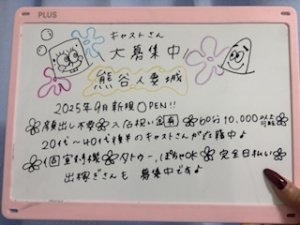 PLUS
キャストさん
大募集中
熊谷人妻城
2025年9月新規OPEN!!
顔出し不要 入店祝い金有 60分10,000以上可能
20代〜40代後半のキャストさんが在籍中♪
個室待機 タトゥー、ぽちゃOK 完全日払い
出稼ぎさんも募集中です♪